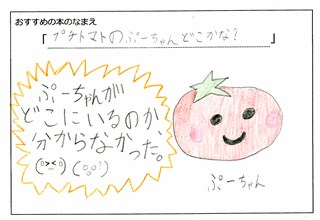 おすすめの本のなまえ
「プチトマトのぷーちゃんどこかな?」
ぷーちゃんが
どこにいるのか
分からなかった。
ぷーちゃん